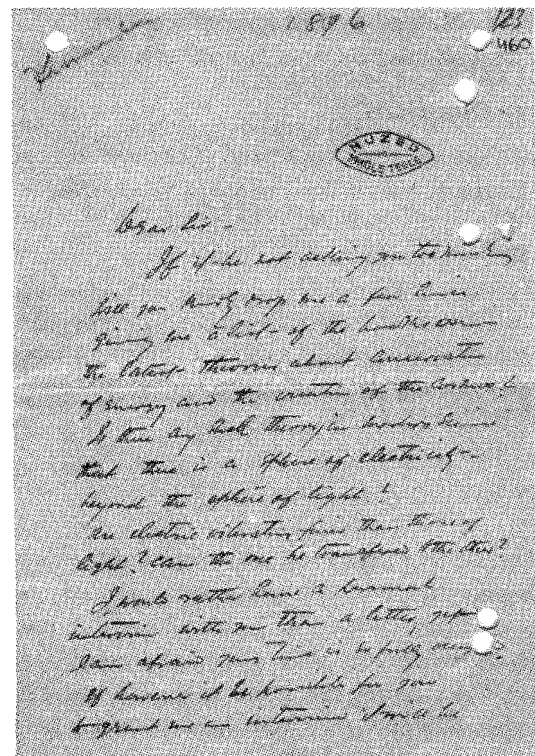 1896
123
460
MUZEJ
NIKOLE TESLE
Dear Sir -
If it be not asking you too much
will you kindly drop me a few lines
giving me a list of the books on
the latest theories about conservation
of energy and the creation of the cosmos?
Is there any such theory in modern science
that there is a sphere of electricity
beyond the sphere of light?
Are electric vibrations finer than those of
light? Can the one be transformed to the other?
I would rather have a personal
interview with you than a letter,
I am afraid your time is
If however it be possible for you
to grant me an interview